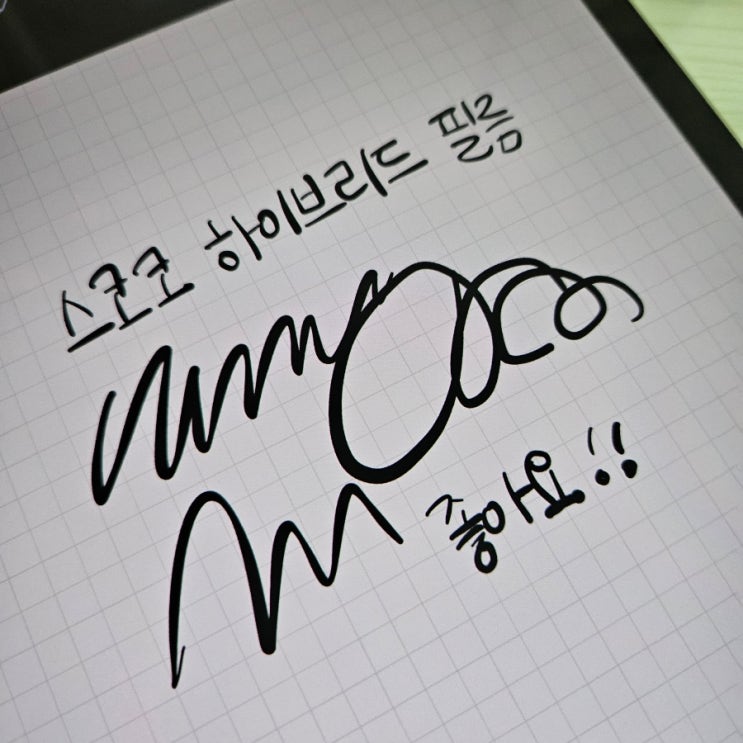 스코코 하이브리드 필름
좋아요!!